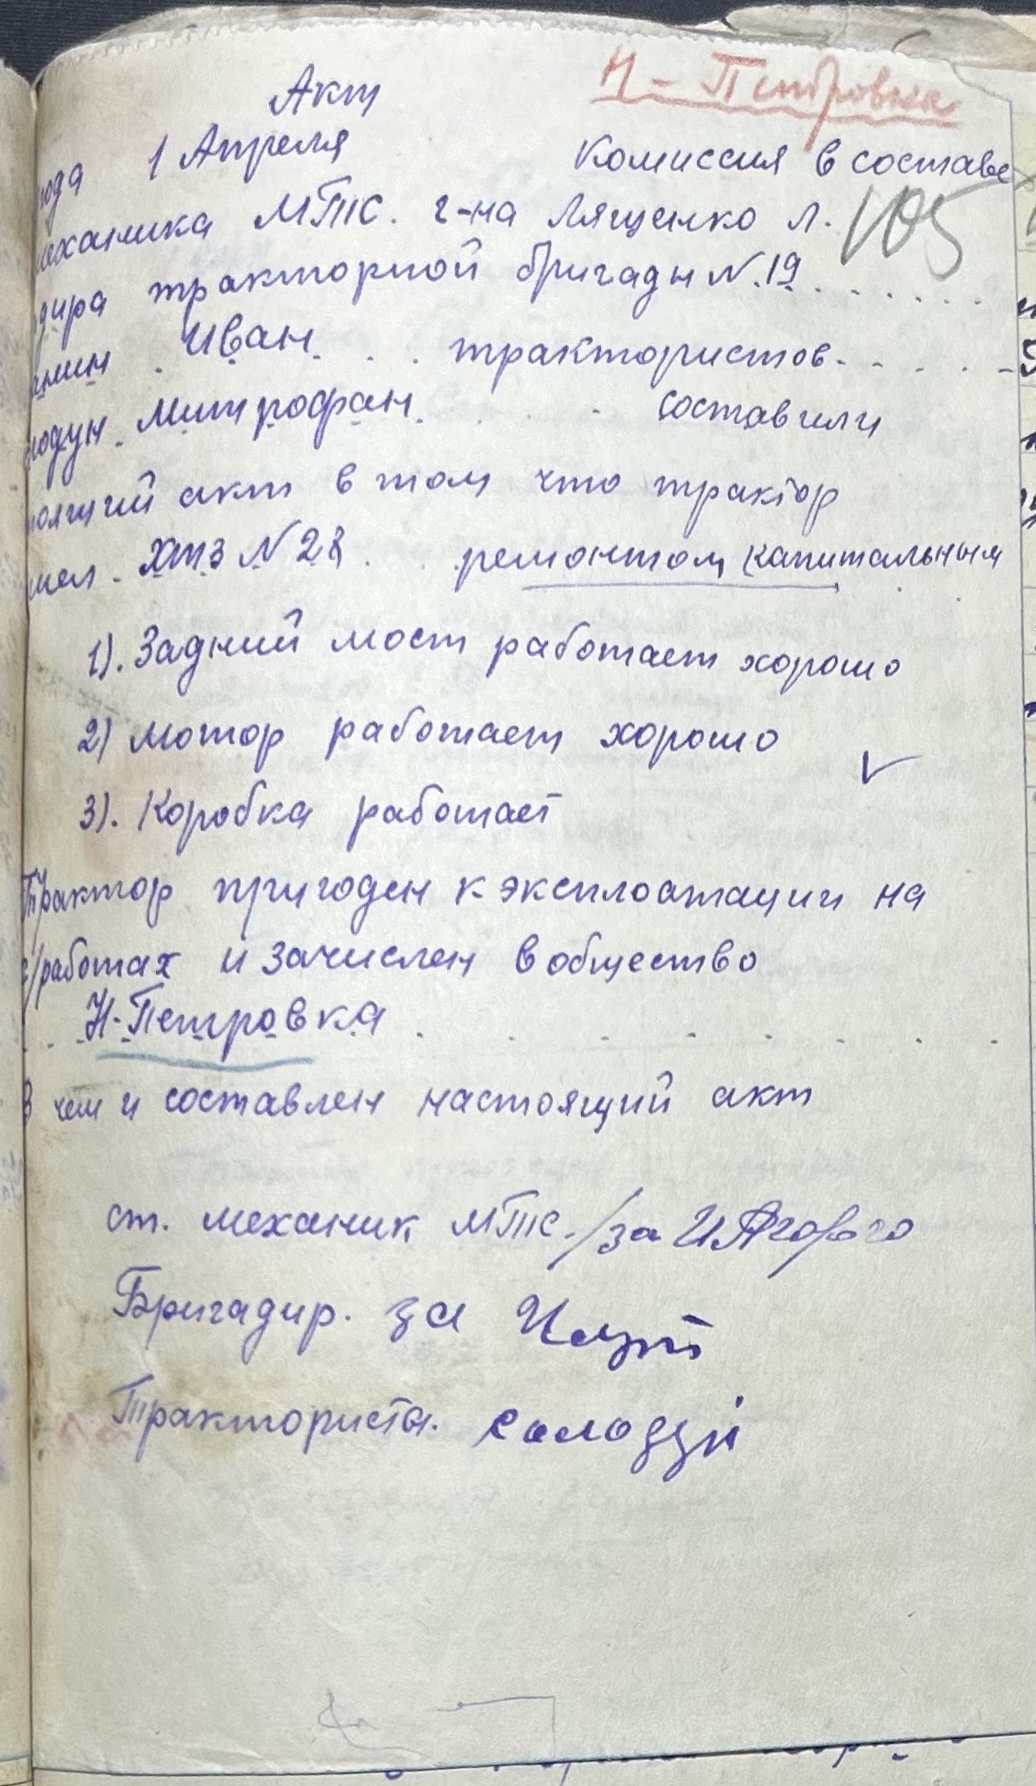 Н-Петровка
Акт
года 1 Апреля Комиссия в составе
механика МТС. г-на Лященко Л. 105
дира тракторной бригады N.19
Иван трактористов
Митрофан составили
оящий акт в том что трактор
ХТЗ N 28 ремонтом капитальным
1). Задний мост работает хорошо
2) Мотор работает хорошо
3). Коробка работает
Трактор пригоден к эксплоатации на
с/работах и зачислен в общество
Н-Петровка
В чем и составлен настоящий акт
ст. механик МТС. /за
Бригадир. за
Тракториста.